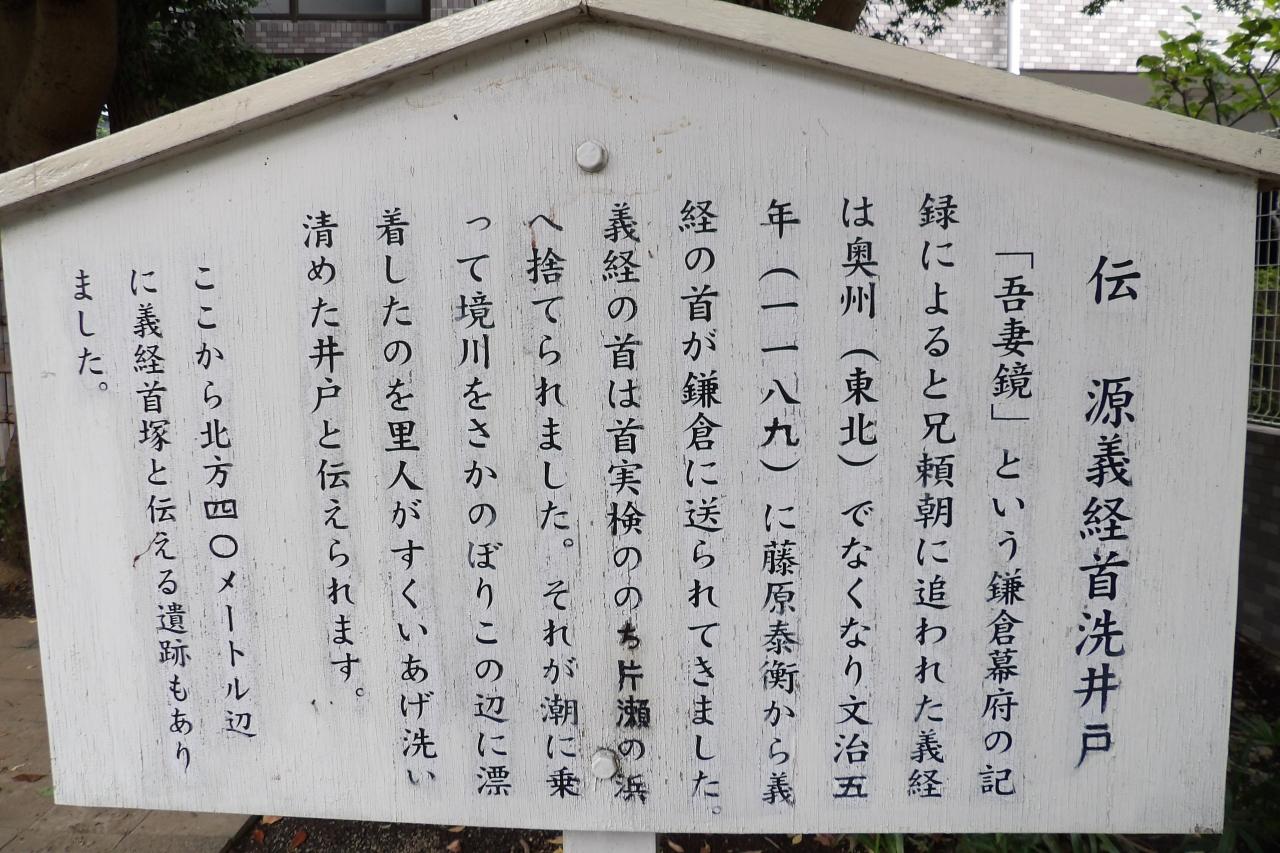 伝　源義経首洗井戸
「吾妻鏡」という鎌倉幕府の記
録によると兄頼朝に追われた義経
は奥州（東北）でなくなり文治五
年（一一八九）に藤原泰衡から義
経の首が鎌倉に送られてきました。
義経の首は首実検ののち片瀬の浜
へ捨てられました。それが潮に乗
って境川をさかのぼりこの辺に漂
着したのを里人がすくいあげ洗い
清めた井戸と伝えられます。
ここから北方四〇メートル辺
に義経首塚と伝える遺跡もあり
ました。